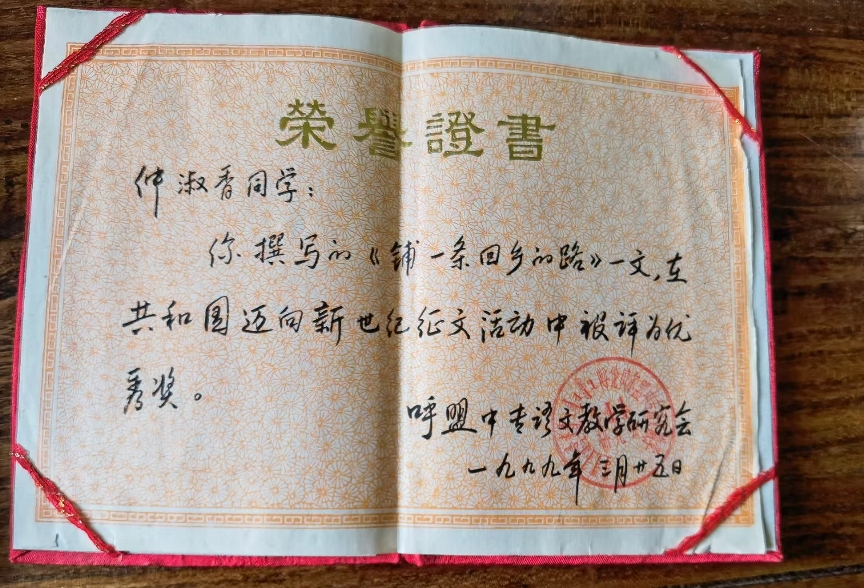 榮譽證書
仲淑香同学：
你撰写的《铺一条回乡的路》一文，在
共和国迈向新世纪征文活动中被评为优
秀奖。
呼盟中专语文教学研究会
一九九九年三月廿五日